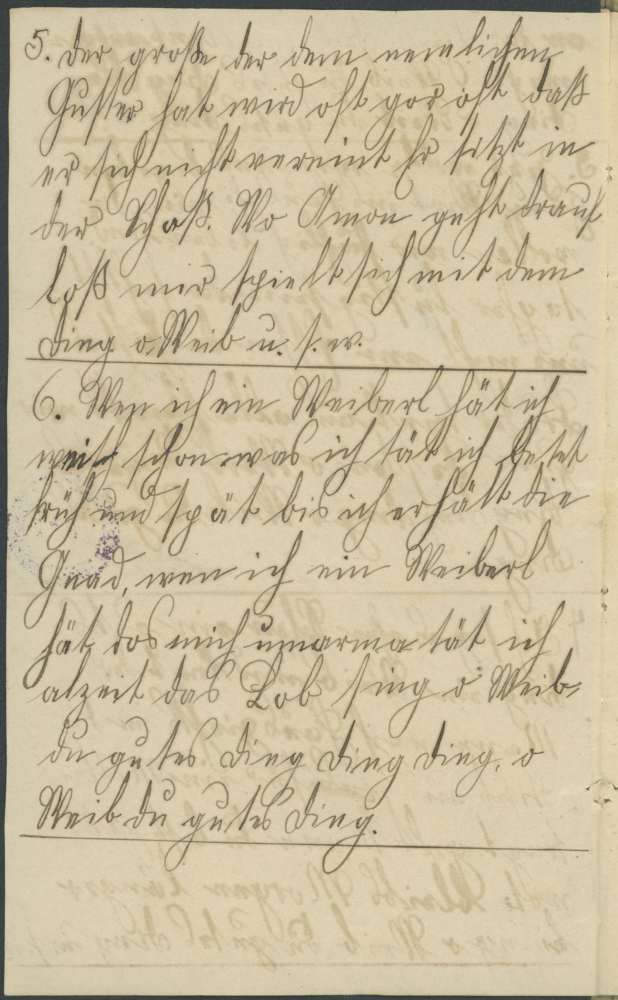 5. Der große der dem nemlichen
Guster hat wird oft gor oft daß
er sich nicht vereint Er sitzt in
der Schoß. Wo Amon geht drauf
loß mir spielt sich mit dem
Ding o Weib u. s. w.
6. Wen ich ein Weiberl hät ich
weis schon was ich tät ich betet
früh und spät bis ich erhält die
Gnad, wen ich ein Weiberl
hät, dos mich umarma tät ich
alzeit das Lob sing o Weib
du gutes Ding Ding Ding, o
Weib du gutes Ding.